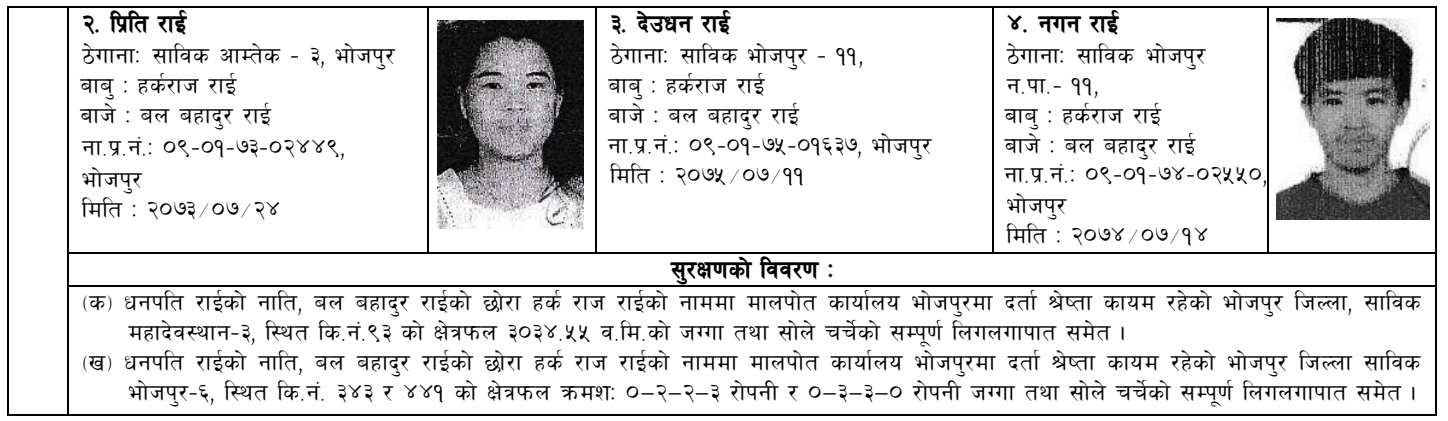 २. प्रिति राई
ठेगाना: साविक आम्तेक - ३, भोजपुर
बाबु : हर्कराज राई
बाजे : बल बहादुर राई
ना.प्र.नं.: ०९-०१-७३-०२४४९,
भोजपुर
मिति : २०७३/०७/२४
३. देउधन राई
ठेगाना: साविक भोजपुर - ११,
बाबु : हर्कराज राई
बाजे : बल बहादुर राई
ना.प्र.नं.: ०९-०१-७५-०१६३७, भोजपुर
मिति : २०७५/०७/११
४. नगन राई
ठेगाना: साविक भोजपुर
न.पा.- ११,
बाबु : हर्कराज राई
बाजे : बल बहादुर राई
ना.प्र.नं.: ०९-०१-७४-०२५५०,
भोजपुर
मिति : २०७४/०७/१४
सुरक्षणको विवरण :
(क) धनपति राईको नाति, बल बहादुर राईको छोरा हर्क राज राईको नाममा मालपोत कार्यालय भोजपुरमा दर्ता श्रेष्ता कायम रहेको भोजपुर जिल्ला, साविक
महादेवस्थान-३, स्थित कि.नं.९३ को क्षेत्रफल ३०३४.५५ व.मि.को जग्गा तथा सोले चर्चेको सम्पूर्ण लिगलगापात समेत ।
(ख) धनपति राईको नाति, बल बहादुर राईको छोरा हर्क राज राईको नाममा मालपोत कार्यालय भोजपुरमा दर्ता श्रेष्ता कायम रहेको भोजपुर जिल्ला साविक
भोजपुर-६, स्थित कि.नं. ३४३ र ४४१ को क्षेत्रफल क्रमश: ०–२–२–३ रोपनी र ०–३–३–० रोपनी जग्गा तथा सोले चर्चेको सम्पूर्ण लिगलगापात समेत ।